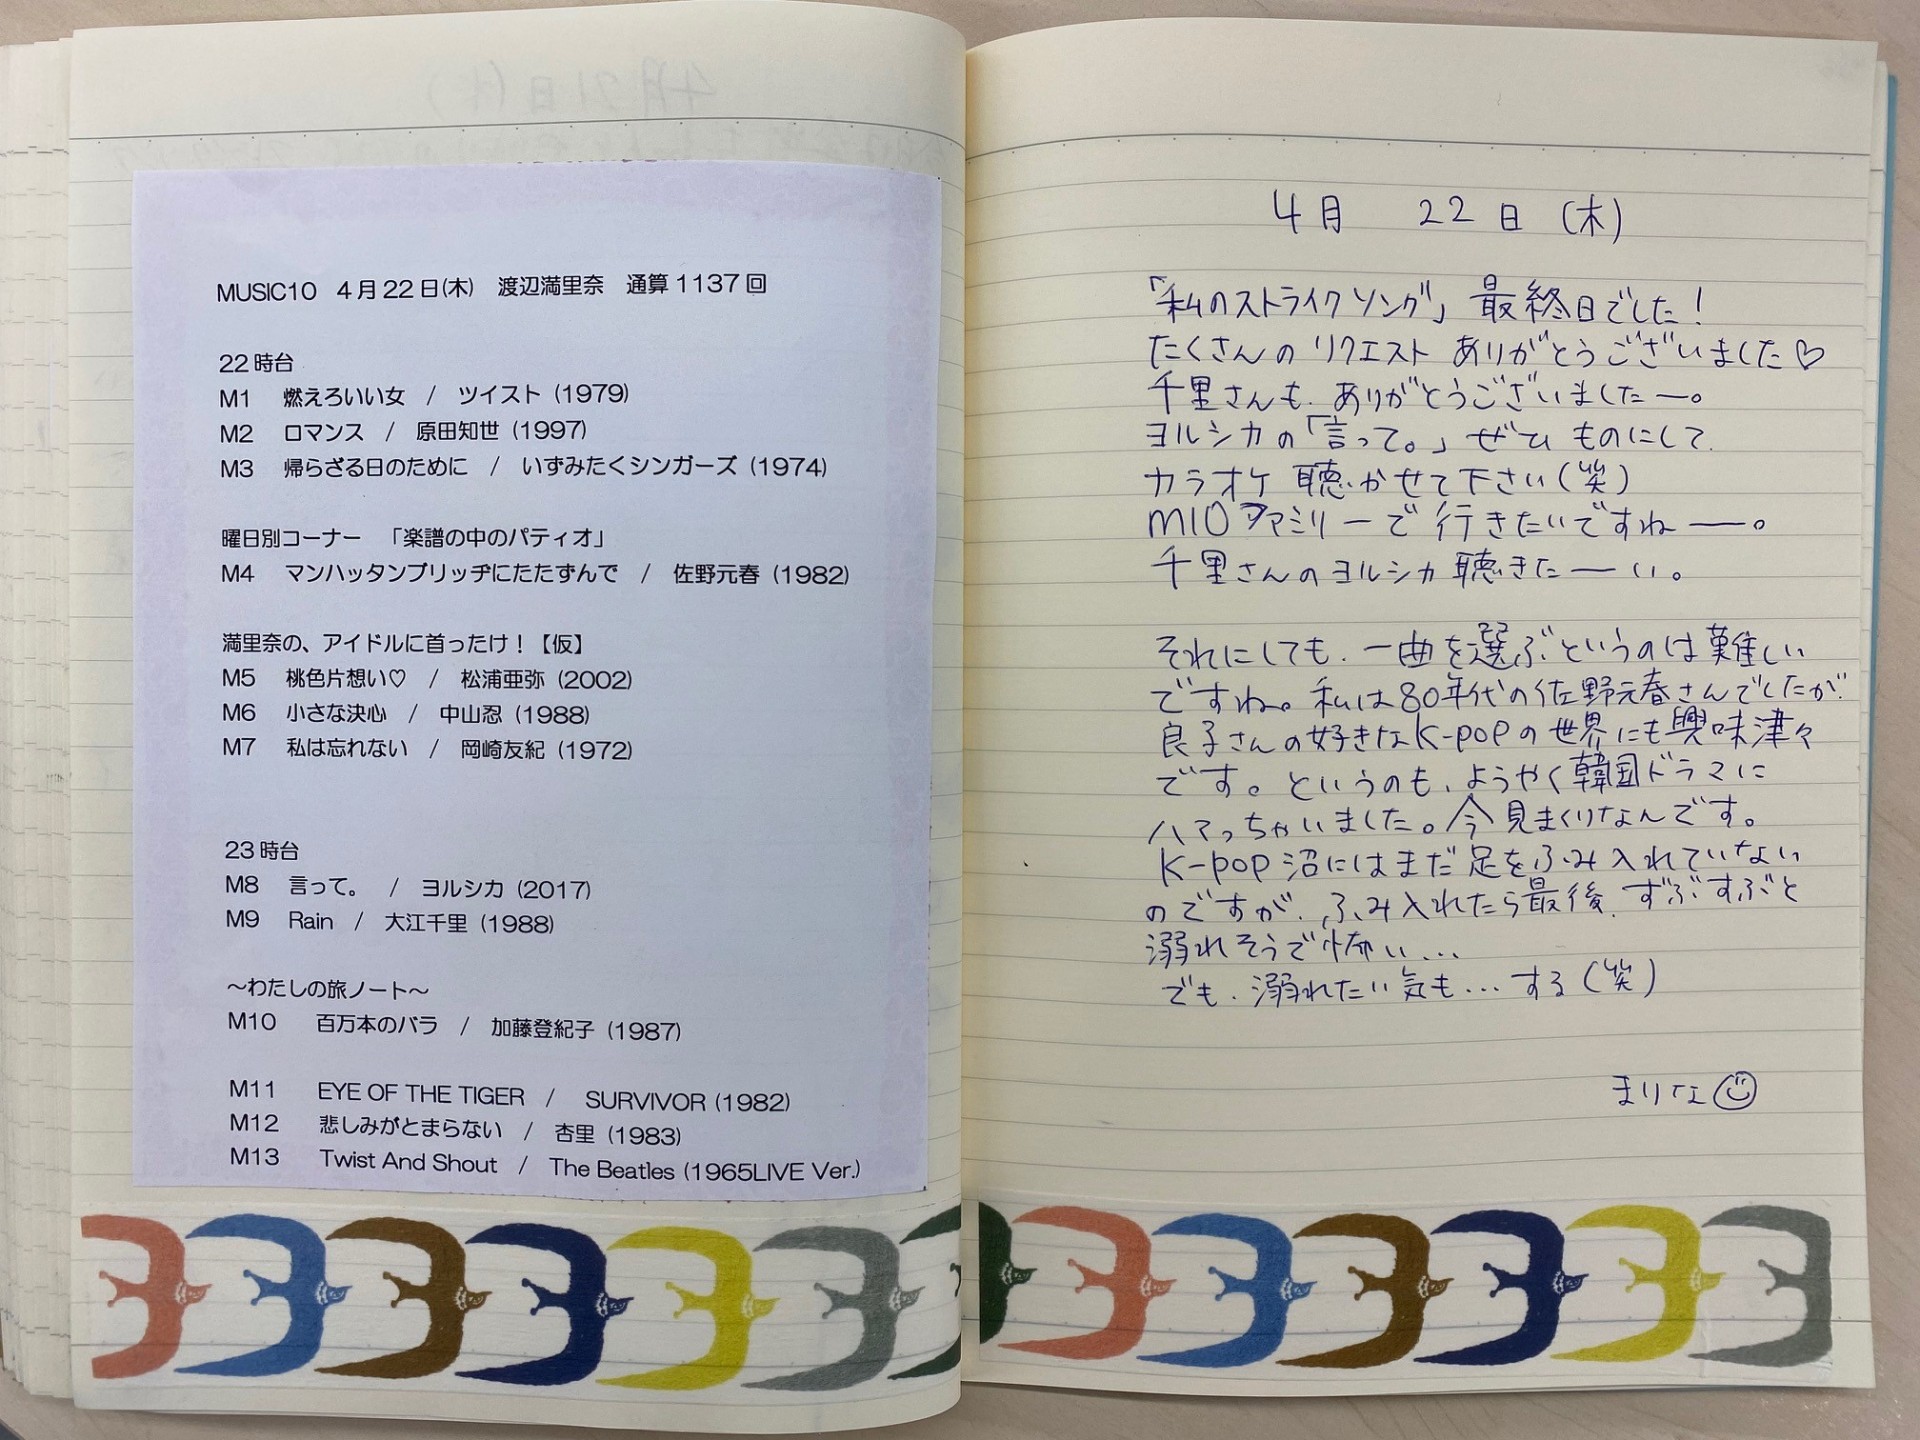 MUSIC10 4月22日(木) 渡辺満里奈 通算1137回
22時台
M1 燃えろいい女 / ツイスト (1979)
M2 ロマンス / 原田知世 (1997)
M3 帰らざる日のために / いずみたくシンガーズ (1974)
曜日別コーナー 「楽譜の中のパティオ」
M4 マンハッタンブリッヂにたたずんで / 佐野元春 (1982)
満里奈の、アイドルに首ったけ！【仮】
M5 桃色片想い♡ / 松浦亜弥 (2002)
M6 小さな決心 / 中山忍 (1988)
M7 私は忘れない / 岡崎友紀 (1972)
23時台
M8 言って。 / ヨルシカ (2017)
M9 Rain / 大江千里 (1988)
～わたしの旅ノート～
M10 百万本のバラ / 加藤登紀子 (1987)
M11 EYE OF THE TIGER / SURVIVOR (1982)
M12 悲しみがとまらない / 杏里 (1983)
M13 Twist And Shout / The Beatles (1965LIVE Ver.)
4月 22日 (木)
「私のストライクソング」最終日でした！
たくさんのリクエストありがとうございました♡
千里さんも、ありがとうございましたー。
ヨルシカの「言って。」ぜひものにして、
カラオケ聴かせて下さい(笑)
M10ファミリーで行きたいですねー。
千里さんのヨルシカ聴きたーい。
それにしても、一曲を選ぶというのは難しい
ですね。私は80年代の佐野元春さんでしたが、
良子さんの好きなK-popの世界にも興味津々
です。というのも、ようやく韓国ドラマに
ハマっちゃいました。今見まくりなんです。
K-pop沼にはまだ足をふみ入れていない
のですが、ふみ入れたら最後、ずぶずぶと
溺れそうで怖い…
でも、溺れたい気も…する(笑)
まりな
4月21日(水)